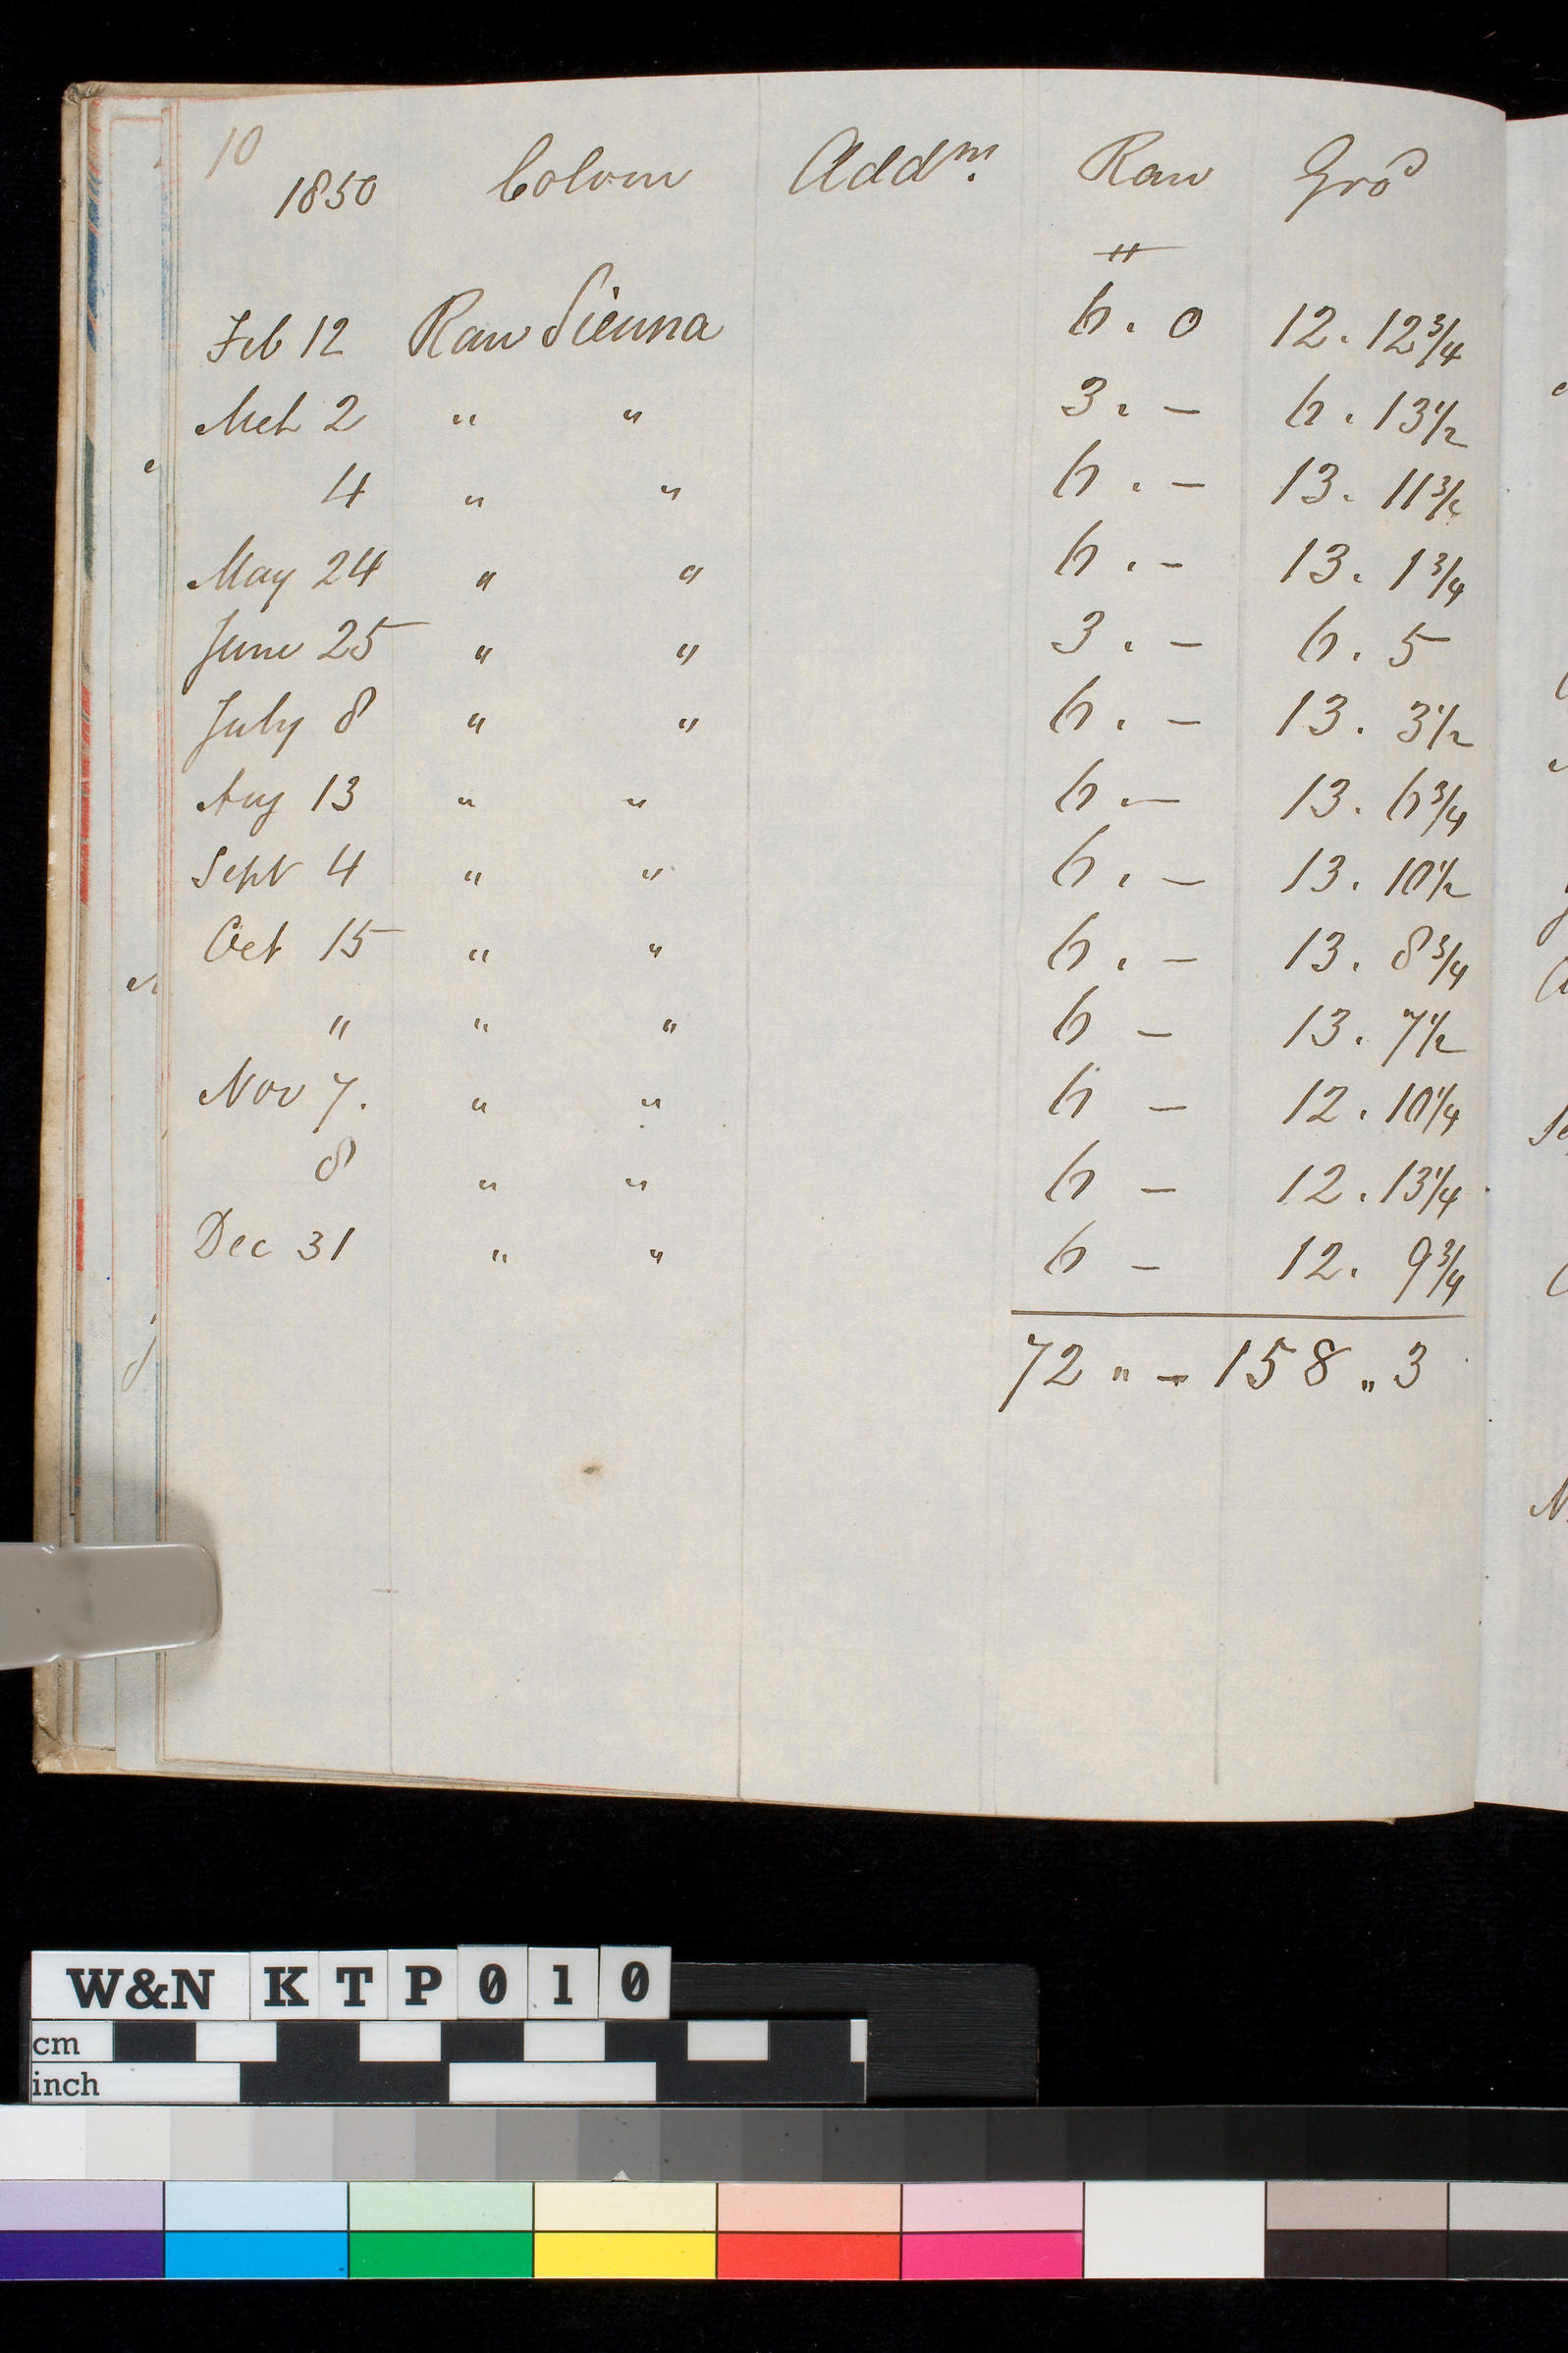 10
1850 Colour Addns. Raw Gro^d
"
Feb 12 Raw Sienna 6 . 0 12 . 12 3/4
Mch 2 " " 3 . – 6 . 13 1/2
4 " " 6 . – 13 . 11 3/4
May 24 " " 6 . – 13 . 1 3/4
June 25 " " 3 . – 6 . 5
July 8 " " 6 . – 13 . 3 1/2
Aug 13 " " 6 . – 13 . 6 3/4
Sept 4 " " 6 . – 13 . 10 1/2
Oct 15 " " 6 . – 13 . 8 3/4
" " " 6 – 13 . 7 1/2
Nov 7. " " 6 – 12 . 10 1/4
8 " " 6 – 12 . 13 1/4
Dec 31 " " 6 – 12 . 9 3/4
72 " – 158 " 3
W&N KTP010
cm
inch